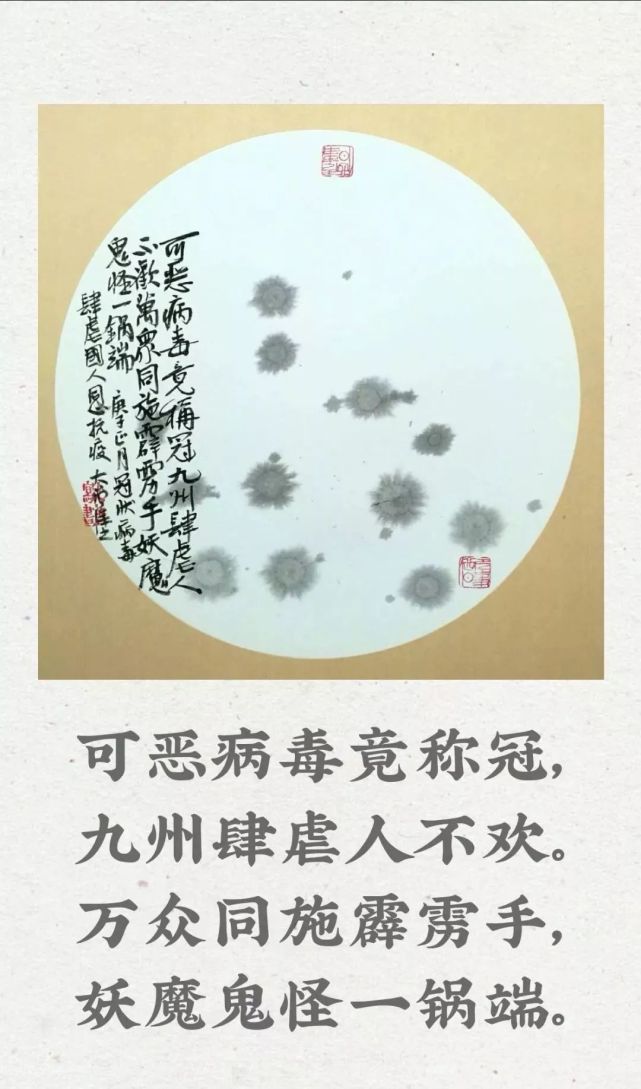 可恶病毒竟稱冠九州肆虐人
不歡萬眾同施霹雳手妖魔
鬼怪一锅端 庚子正月冠狀病毒
肆虐國人同心抗疫
可恶病毒竟称冠，
九州肆虐人不欢。
万众同施霹雳手，
妖魔鬼怪一锅端。